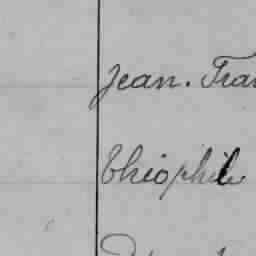 Jean. Fran
Théophile